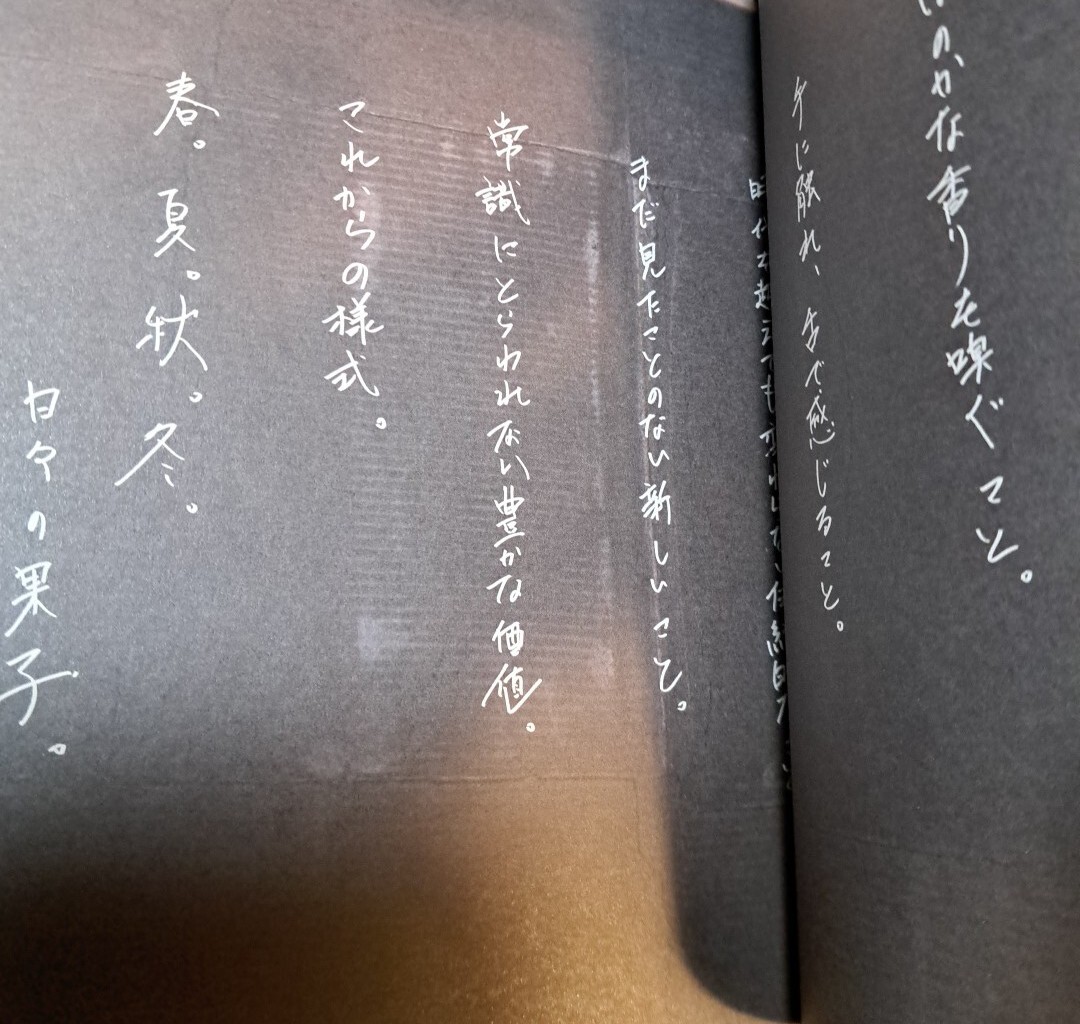 ほのかな香りを嗅ぐこと。
手に触れ、舌で感じること。
時代を超えても変わらない仕組
まだ見たことのない新しいこと。
常識にとらわれない豊かな価値。
これからの様式。
春。夏。秋。冬。
日々の果子。